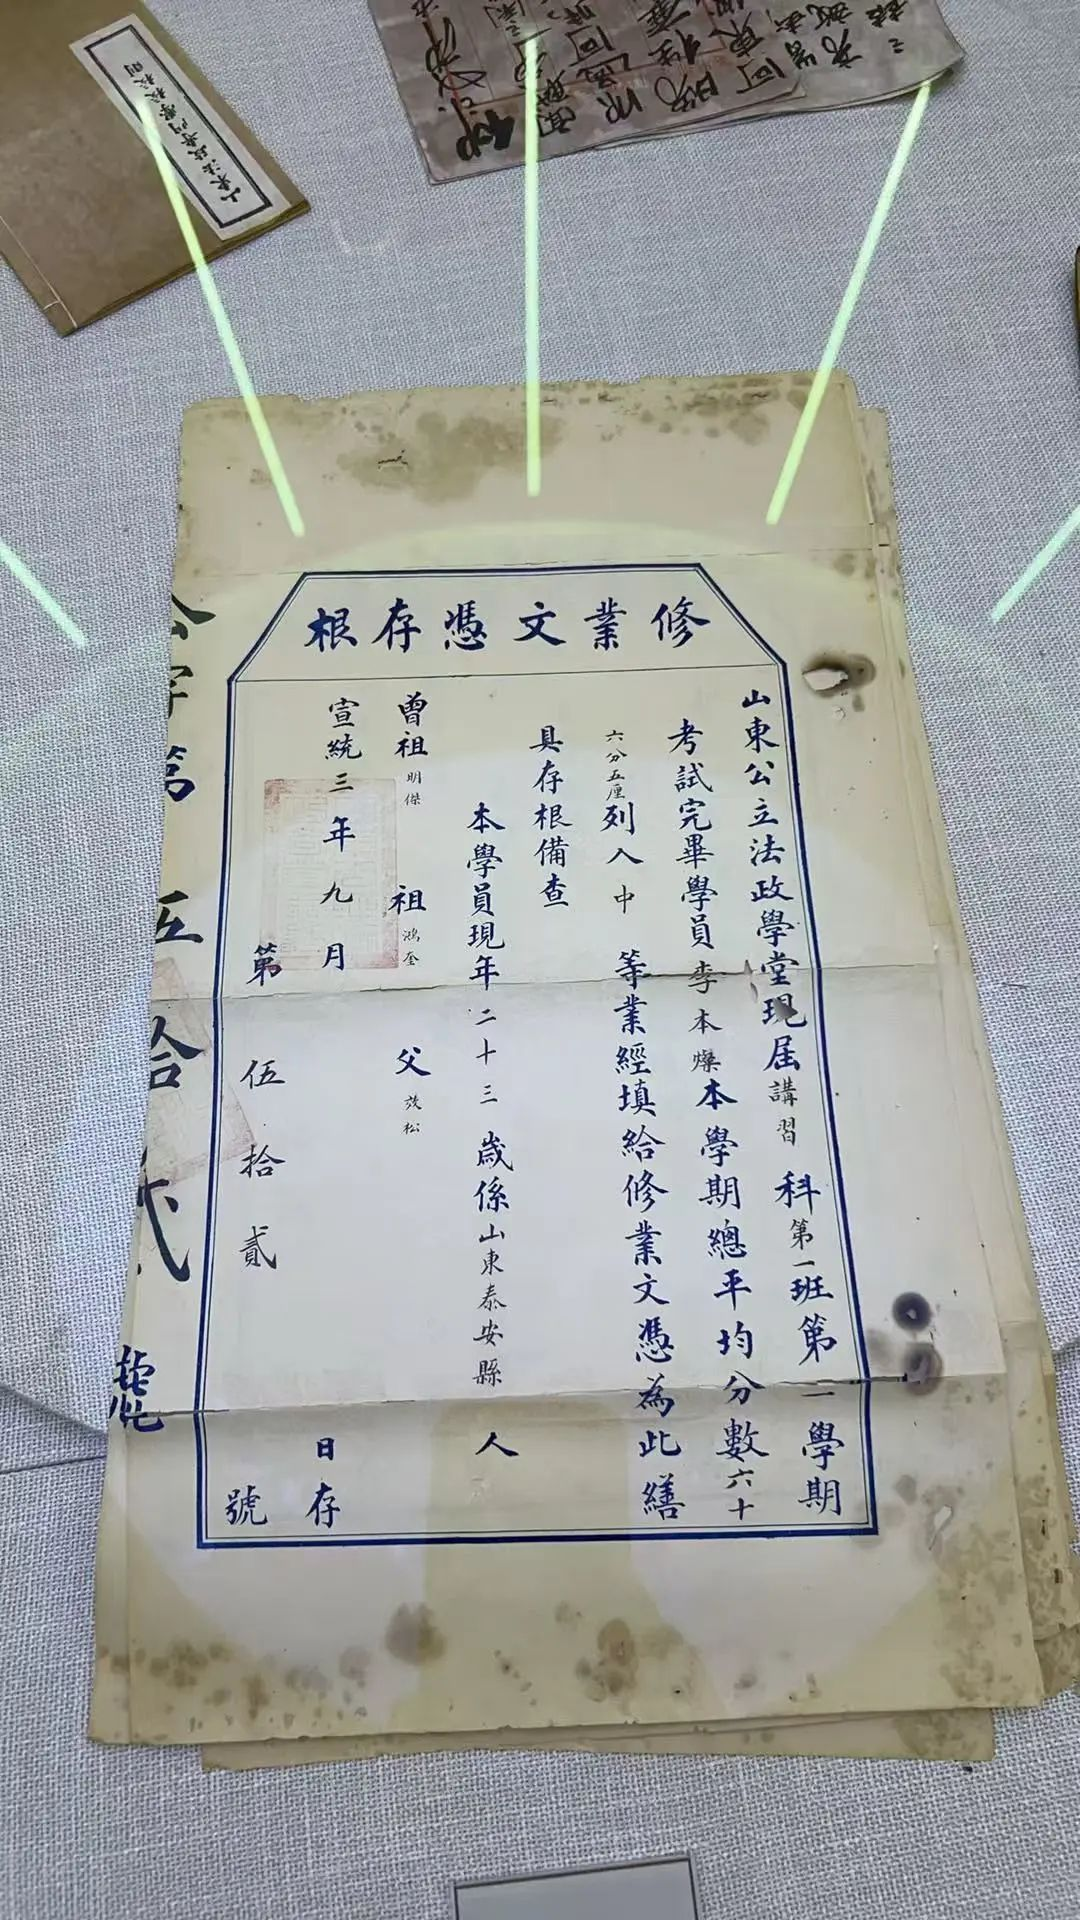 修業文憑存根
山東公立法政學堂現屆講習科第一班第一學期
考試完畢學員李本燦本學期總平均分數六十
六分五厘列入中等業經填給修業文憑為此繕
具存根備查
本學員現年二十三歲係山東泰安縣人
曾祖明傑 祖鴻奎 父效松
宣統三年九月日存
第伍拾貳號
公字第伍拾貳號
山東法政專門學校校則